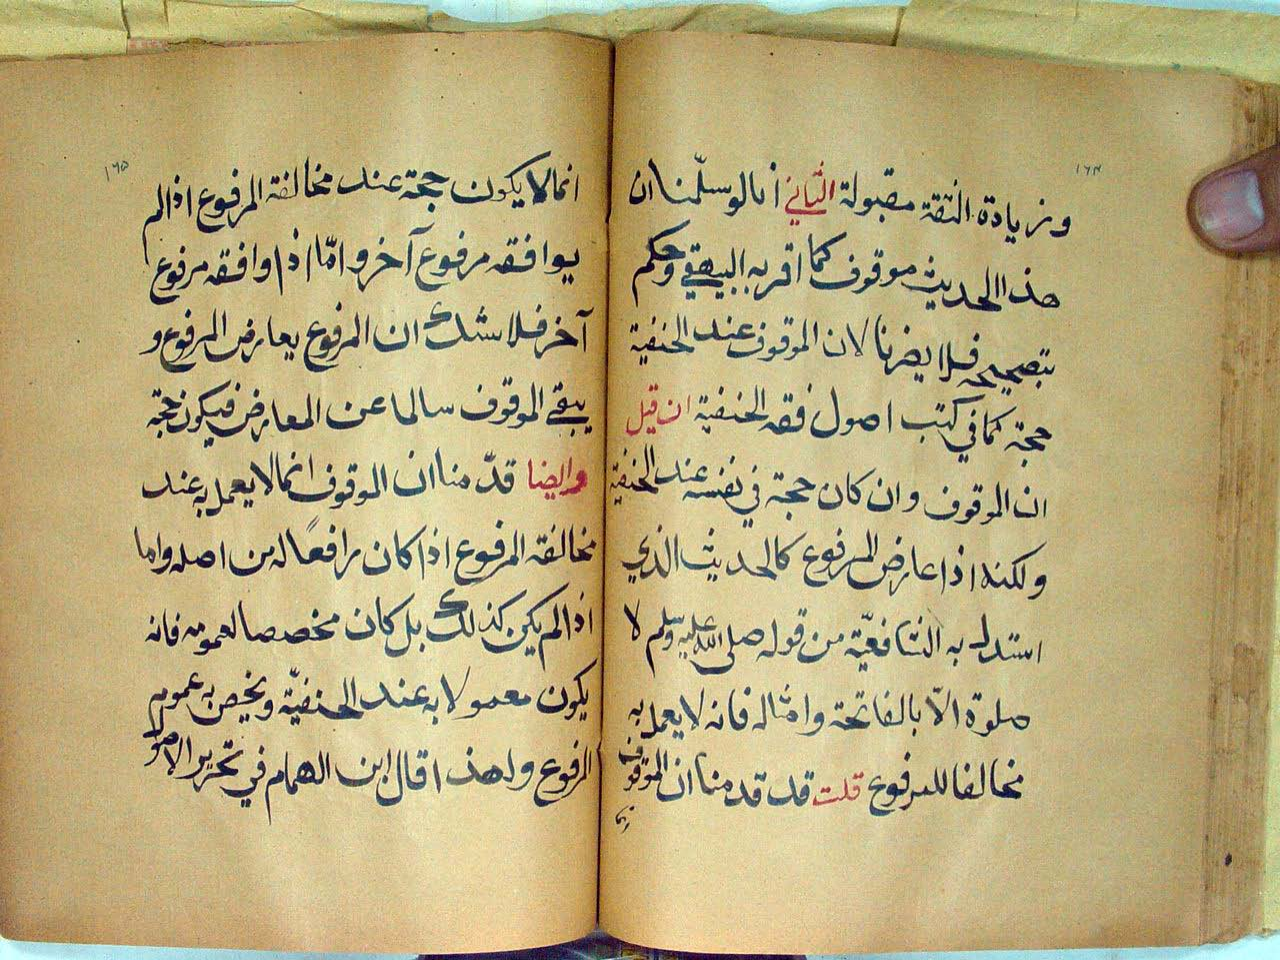 ١٦٤
وزيادة الثقة مقبولة الثاني أنا لو سلّمنا ان
هذا الحديث موقوف كما اقر به البيهقي وحكم
بتصحيحه فلا يضرنا لان الموقوف عند الحنفية
حجة كما في كتب اصول فقه الحنفية ان قيل
ان الموقوف وان كان حجة في نفسه عند الحنفية
ولكنه اذا عارض المرفوع كالحديث الذي
استدل به الشافعيّة من قوله صلى الله عليه وسلم لا
صلوة الّا بالفاتحة وامثاله فانه لا يعمل به
مخالفا للمرفوع قلت قد قدمنا ان الموقوف
انما
١٦٥
انما لا يكون حجة عند مخالفة المرفوع اذا لم
يوافقه مرفوع آخر وامّا اذا وافقه مرفوع
آخر فلا شك ان المرفوع يعارض المرفوع و
يبقى الموقوف سالما عن المعارض فيكون حجة
وايضا قدّمنا ان الموقوف انما لا يعمل به عند
مخالفة المرفوع اذا كان رافعًا له من اصله واما
اذا لم يكن كذلك بل كان مخصصا لعمومه فانه
يكون معمولا به عند الحنفيّة ويخص به عموم
المرفوع ولهذا قال ابن الهمام في تحرير الاصول